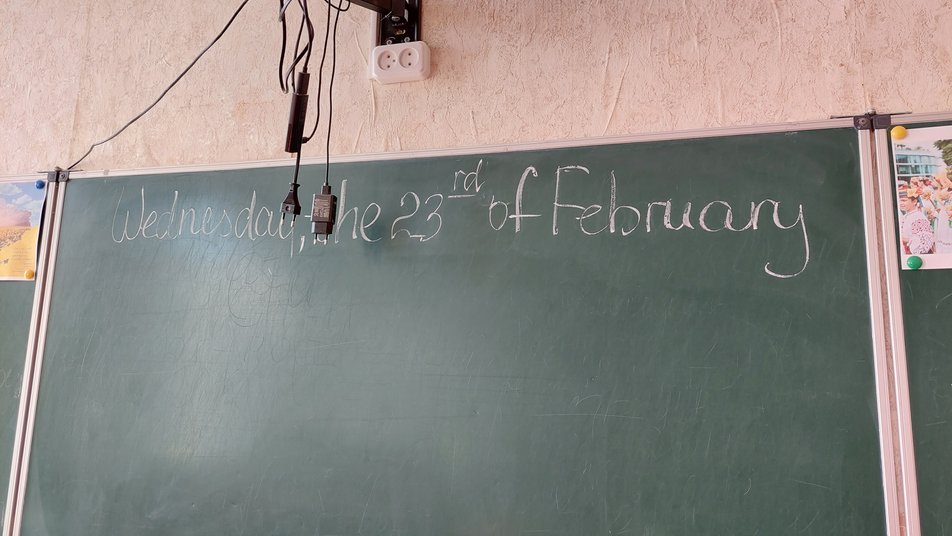 Wednesday, the 23rd of February